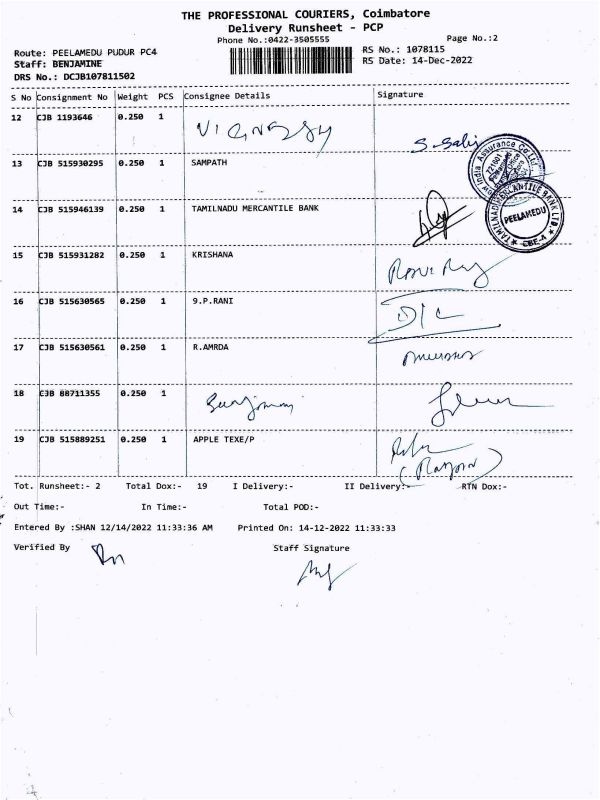 THE PROFESSIONAL COURIERS, Coimbatore
Delivery Runsheet - PCP
Phone No.:0422-3505555
Page No.:2
Route: PEELAMEDU PUDUR PC4
RS No.: 1078115
Staff: BENJAMINE
RS Date: 14-Dec-2022
DRS No.: DCJB107811502
S No Consignment No Weight PCS Consignee Details Signature
12 CJB 1193646 0.250 1
13 CJB 515930295 0.250 1 SAMPATH
14 CJB 515946139 0.250 1 TAMILNADU MERCANTILE BANK
TAMILNAD MERCANTILE BANK LTD.
PEELAMEDU
CBE-4
15 CJB 515931282 0.250 1 KRISHANA
16 CJB 515630565 0.250 1 9.P.RANI
17 CJB 515630561 0.250 1 R.AMRDA
18 CJB 88711355 0.250 1
19 CJB 515889251 0.250 1 APPLE TEXE/P
Tot. Runsheet:- 2 Total Dox:- 19 I Delivery:- II Delivery:- RTN Dox:-
Out Time:- In Time:- Total POD:-
Entered By :SHAN 12/14/2022 11:33:36 AM Printed On: 14-12-2022 11:33:33
Verified By Staff Signature